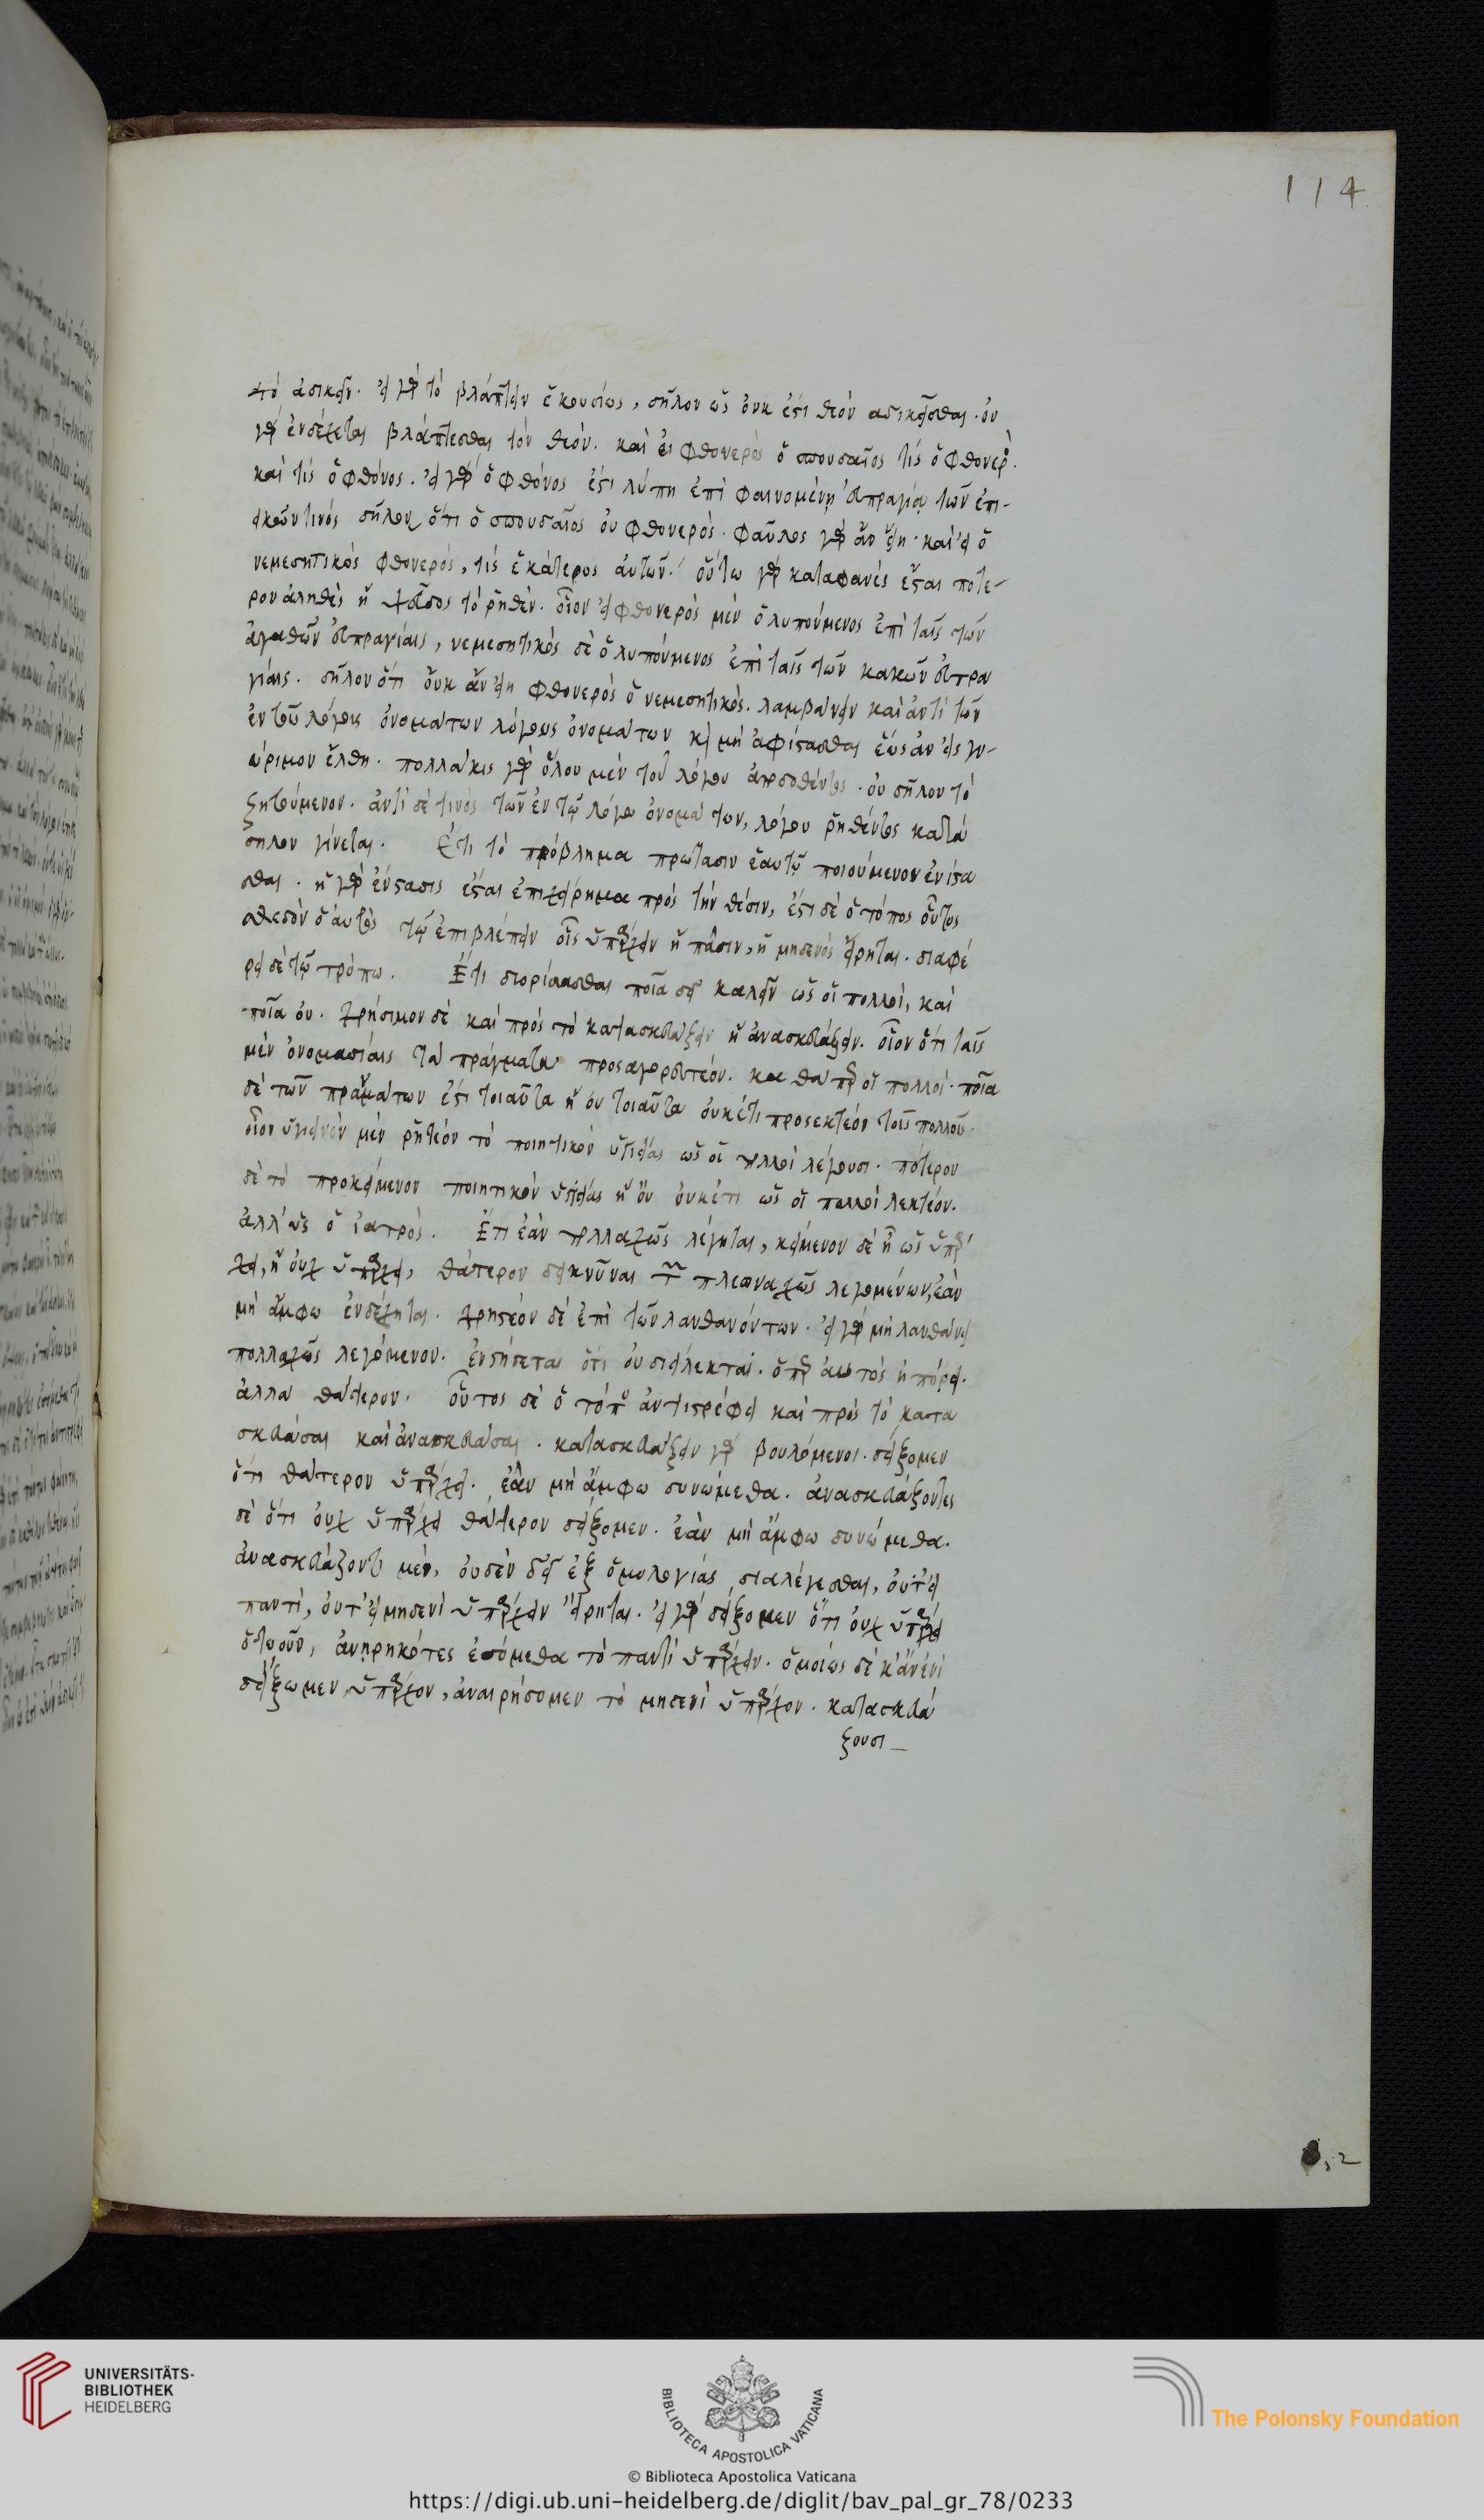 114
τὸ ἀδικεῖν. εἰ γὰρ τὸ βλάπτειν ἑκουσίως, δῆλον ὡς οὐκ ἔστι θεὸν ἀδικεῖσθαι. οὐ
γὰρ ἐνδέχεται βλάπτεσθαι τὸν θεόν. καὶ εἰ φθονερὸς ὁ σπουδαῖος τίς ὁ φθονερός.
καὶ τίς ὁ φθόνος. εἰ γὰρ ὁ φθόνος ἐστὶ λύπη ἐπὶ φαινομένῃ εὐπραγίᾳ τῶν ἐπι-
εικῶν τινός δῆλον ὅτι ὁ σπουδαῖος οὐ φθονερός. φαῦλος γὰρ ἂν εἴη. καὶ εἰ ὁ
νεμεσητικὸς φθονερός, τίς ἑκάτερος αὐτῶν. οὕτω γὰρ καταφανὲς ἔσται πότε-
ρον ἀληθὲς ἢ ψεῦδος τὸ ῥηθέν. οἷον εἰ φθονερὸς μὲν ὁ λυπούμενος ἐπὶ ταῖς τῶν
ἀγαθῶν εὐπραγίαις, νεμεσητικὸς δὲ ὁ λυπούμενος ἐπὶ ταῖς τῶν κακῶν εὐπρα
γίαις. δῆλον ὅτι οὐκ ἂν εἴη φθονερὸς ὁ νεμεσητικός. λαμβάνειν καὶ ἀντὶ τῶν
ἐν τοῖς λόγοις ὀνομάτων λόγους ὀνομάτων καὶ μὴ ἀφίστασθαι ἕως ἂν εἰς γν-
ώριμον ἔλθῃ. πολλάκις γὰρ ὅλου μὲν τοῦ λόγου ἀποδοθέντος. οὐ δῆλον τὸ
ζητούμενον. ἀντὶ δὲ τινὸς τῶν ἐν τῷ λόγῳ ὀνομάτων, λόγου ῥηθέντος κατά
δηλον γίνεται. Ἔτι τὸ πρόβλημα πρότασιν ἑαυτῷ ποιούμενον ἐνίστα
σθαι. ἡ γὰρ ἔνστασις ἔσται ἐπιχείρημα πρὸς τὴν θέσιν, ἔστι δὲ ὁ τόπος οὗτος
σχεδὸν ὁ αὐτὸς τῷ ἐπιβλέπειν οἷς ὑπάρχειν ἢ πᾶσιν, ἢ μηδενὸς εἴρηται. διαφέ
ρει δὲ τῷ τρόπω. Ἔτι διορίσασθαι ποῖα δεῖ καλεῖν ὡς οἱ πολλοὶ, καὶ
ποῖα οὐ. χρήσιμον δὲ καὶ πρὸς τὸ κατασκευάζειν ἢ ἀνασκευάζειν. οἷον ὅτι ταῖς
μὲν ὀνομασίαις τὰ πράγματα προσαγορευτέον. καθάπερ οἱ πολλοί. ποῖα
δὲ τῶν πραγμάτων ἐστὶ τοιαῦτα ἢ οὐ τοιαῦτα οὐκέτι προσεκτέον τοῖς πολλοῖς.
οἷον ὑγιεινὸν μὲν ῥητέον τὸ ποιητικὸν ὑγιείας ὡς οἱ πολλοὶ λέγουσι. πότερον
δὲ τὸ προκείμενον ποιητικὸν ὑγιείας ἢ οὔ οὐκέτι ὡς οἱ πολλοὶ λεκτέον.
ἀλλ' ὡς ὁ ἰατρός. Ἔτι ἐὰν πολλαχῶς λέγηται, κείμενον δὲ ἢ ὡς ὑπάρ
χει, ἢ οὐχ ὑπάρχει, θάτερον δεικνῦναι τῶν πλεοναχῶς λεγομένων, ἐὰν
μὴ ἄμφω ἐνδέχηται. χρηστέον δὲ ἐπὶ τῶν λανθανόντων. εἰ γὰρ μὴ λανθάνει
πολλαχῶς λεγόμενον. ἐνστήσεται ὅτι οὐ διείλεκται. ὅπερ αὐτὸς ἠπόρει.
ἀλλὰ θάτερον. οὗτος δὲ ὁ τόπος ἀντιστρέφει καὶ πρὸς τὸ κατα
σκευάσαι καὶ ἀνασκευάσαι. κατασκευάζειν γὰρ βουλόμενοι. δείξομεν
ὅτι θάτερον ὑπάρχει. ἐὰν μὴ ἄμφω δυνώμεθα. ἀνασκευάζοντες
δὲ ὅτι οὐχ ὑπάρχει θάτερον δείξομεν. ἐὰν μὴ ἄμφω δυνώμεθα.
ἀνασκευάζοντι μὲν, οὐδὲν δεῖ ἐξ ὁμολογίας διαλέγεσθαι, οὔτ' εἰ
παντὶ, οὔτ' εἰ μηδενὶ ὑπάρχειν εἴρηται. εἰ γὰρ δείξομεν ὅτι οὐχ ὑπάρχει
ὁτῳοῦν, ἀνῃρηκότες ἐσόμεθα τὸ παντὶ ὑπάρχειν. ὁμοίως δὲ κἂν ἑνὶ
δείξωμεν ὑπάρχον, ἀναιρήσομεν τὸ μηδενὶ ὑπάρχον. κατασκευά
ζουσι
UNIVERSITÄTS-
BIBLIOTHEK
HEIDELBERG
BIBLIOTECA APOSTOLICA VATICANA
The Polonsky Foundation
© Biblioteca Apostolica Vaticana
https://digi.ub.uni-heidelberg.de/diglit/bav_pal_gr_78/0233